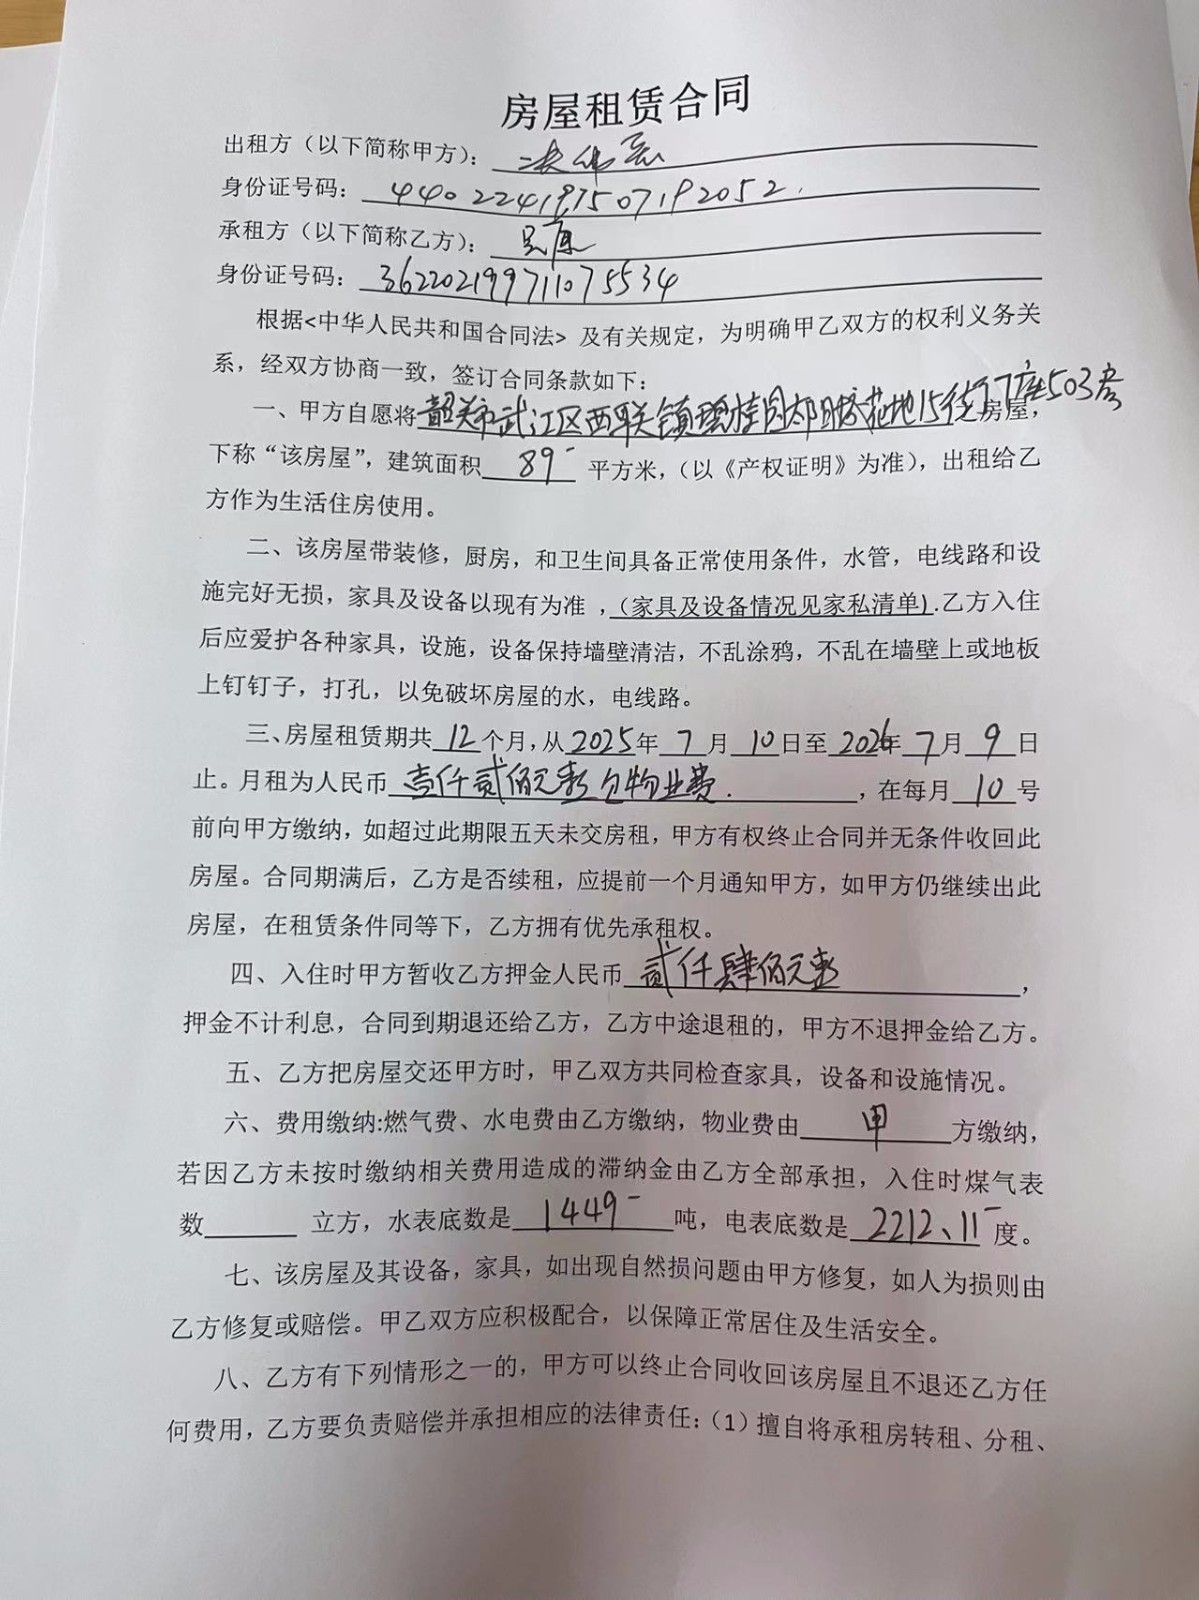 房屋租赁合同
出租方（以下简称甲方）：
身份证号码：440224197507192052.
承租方（以下简称乙方）：吴康
身份证号码：362202199711075534
根据<中华人民共和国合同法> 及有关规定，为明确甲乙双方的权利义务关
系，经双方协商一致，签订合同条款如下：
一、甲方自愿将韶关市武江区西联镇碧桂园太阳城花地15街17座503房之房屋，
下称“该房屋”，建筑面积 89- 平方米，（以《产权证明》为准），出租给乙
方作为生活住房使用。
二、该房屋带装修，厨房，和卫生间具备正常使用条件，水管，电线路和设
施完好无损，家具及设备以现有为准，（家具及设备情况见家私清单）.乙方入住
后应爱护各种家具，设施，设备保持墙壁清洁，不乱涂鸦，不乱在墙壁上或地板
上钉钉子，打孔，以免破坏房屋的水，电线路。
三、房屋租赁期共 12 个月，从 2025 年 7 月 10 日至 2026 年 7 月 9 日
止。月租为人民币 壹仟贰佰元整包物业费. ，在每月 10 号
前向甲方缴纳，如超过此期限五天未交房租，甲方有权终止合同并无条件收回此
房屋。合同期满后，乙方是否续租，应提前一个月通知甲方，如甲方仍继续出此
房屋，在租赁条件同等下，乙方拥有优先承租权。
四、入住时甲方暂收乙方押金人民币 贰仟肆佰元整 ，
押金不计利息，合同到期退还给乙方，乙方中途退租的，甲方不退押金给乙方。
五、乙方把房屋交还甲方时，甲乙双方共同检查家具，设备和设施情况。
六、费用缴纳:燃气费、水电费由乙方缴纳，物业费由 甲 方缴纳，
若因乙方未按时缴纳相关费用造成的滞纳金由乙方全部承担，入住时煤气表
数______ 立方，水表底数是 1449- 吨，电表底数是 2212、11- 度。
七、该房屋及其设备，家具，如出现自然损问题由甲方修复，如人为损则由
乙方修复或赔偿。甲乙双方应积极配合，以保障正常居住及生活安全。
八、乙方有下列情形之一的，甲方可以终止合同收回该房屋且不退还乙方任
何费用，乙方要负责赔偿并承担相应的法律责任：（1）擅自将承租房转租、分租、